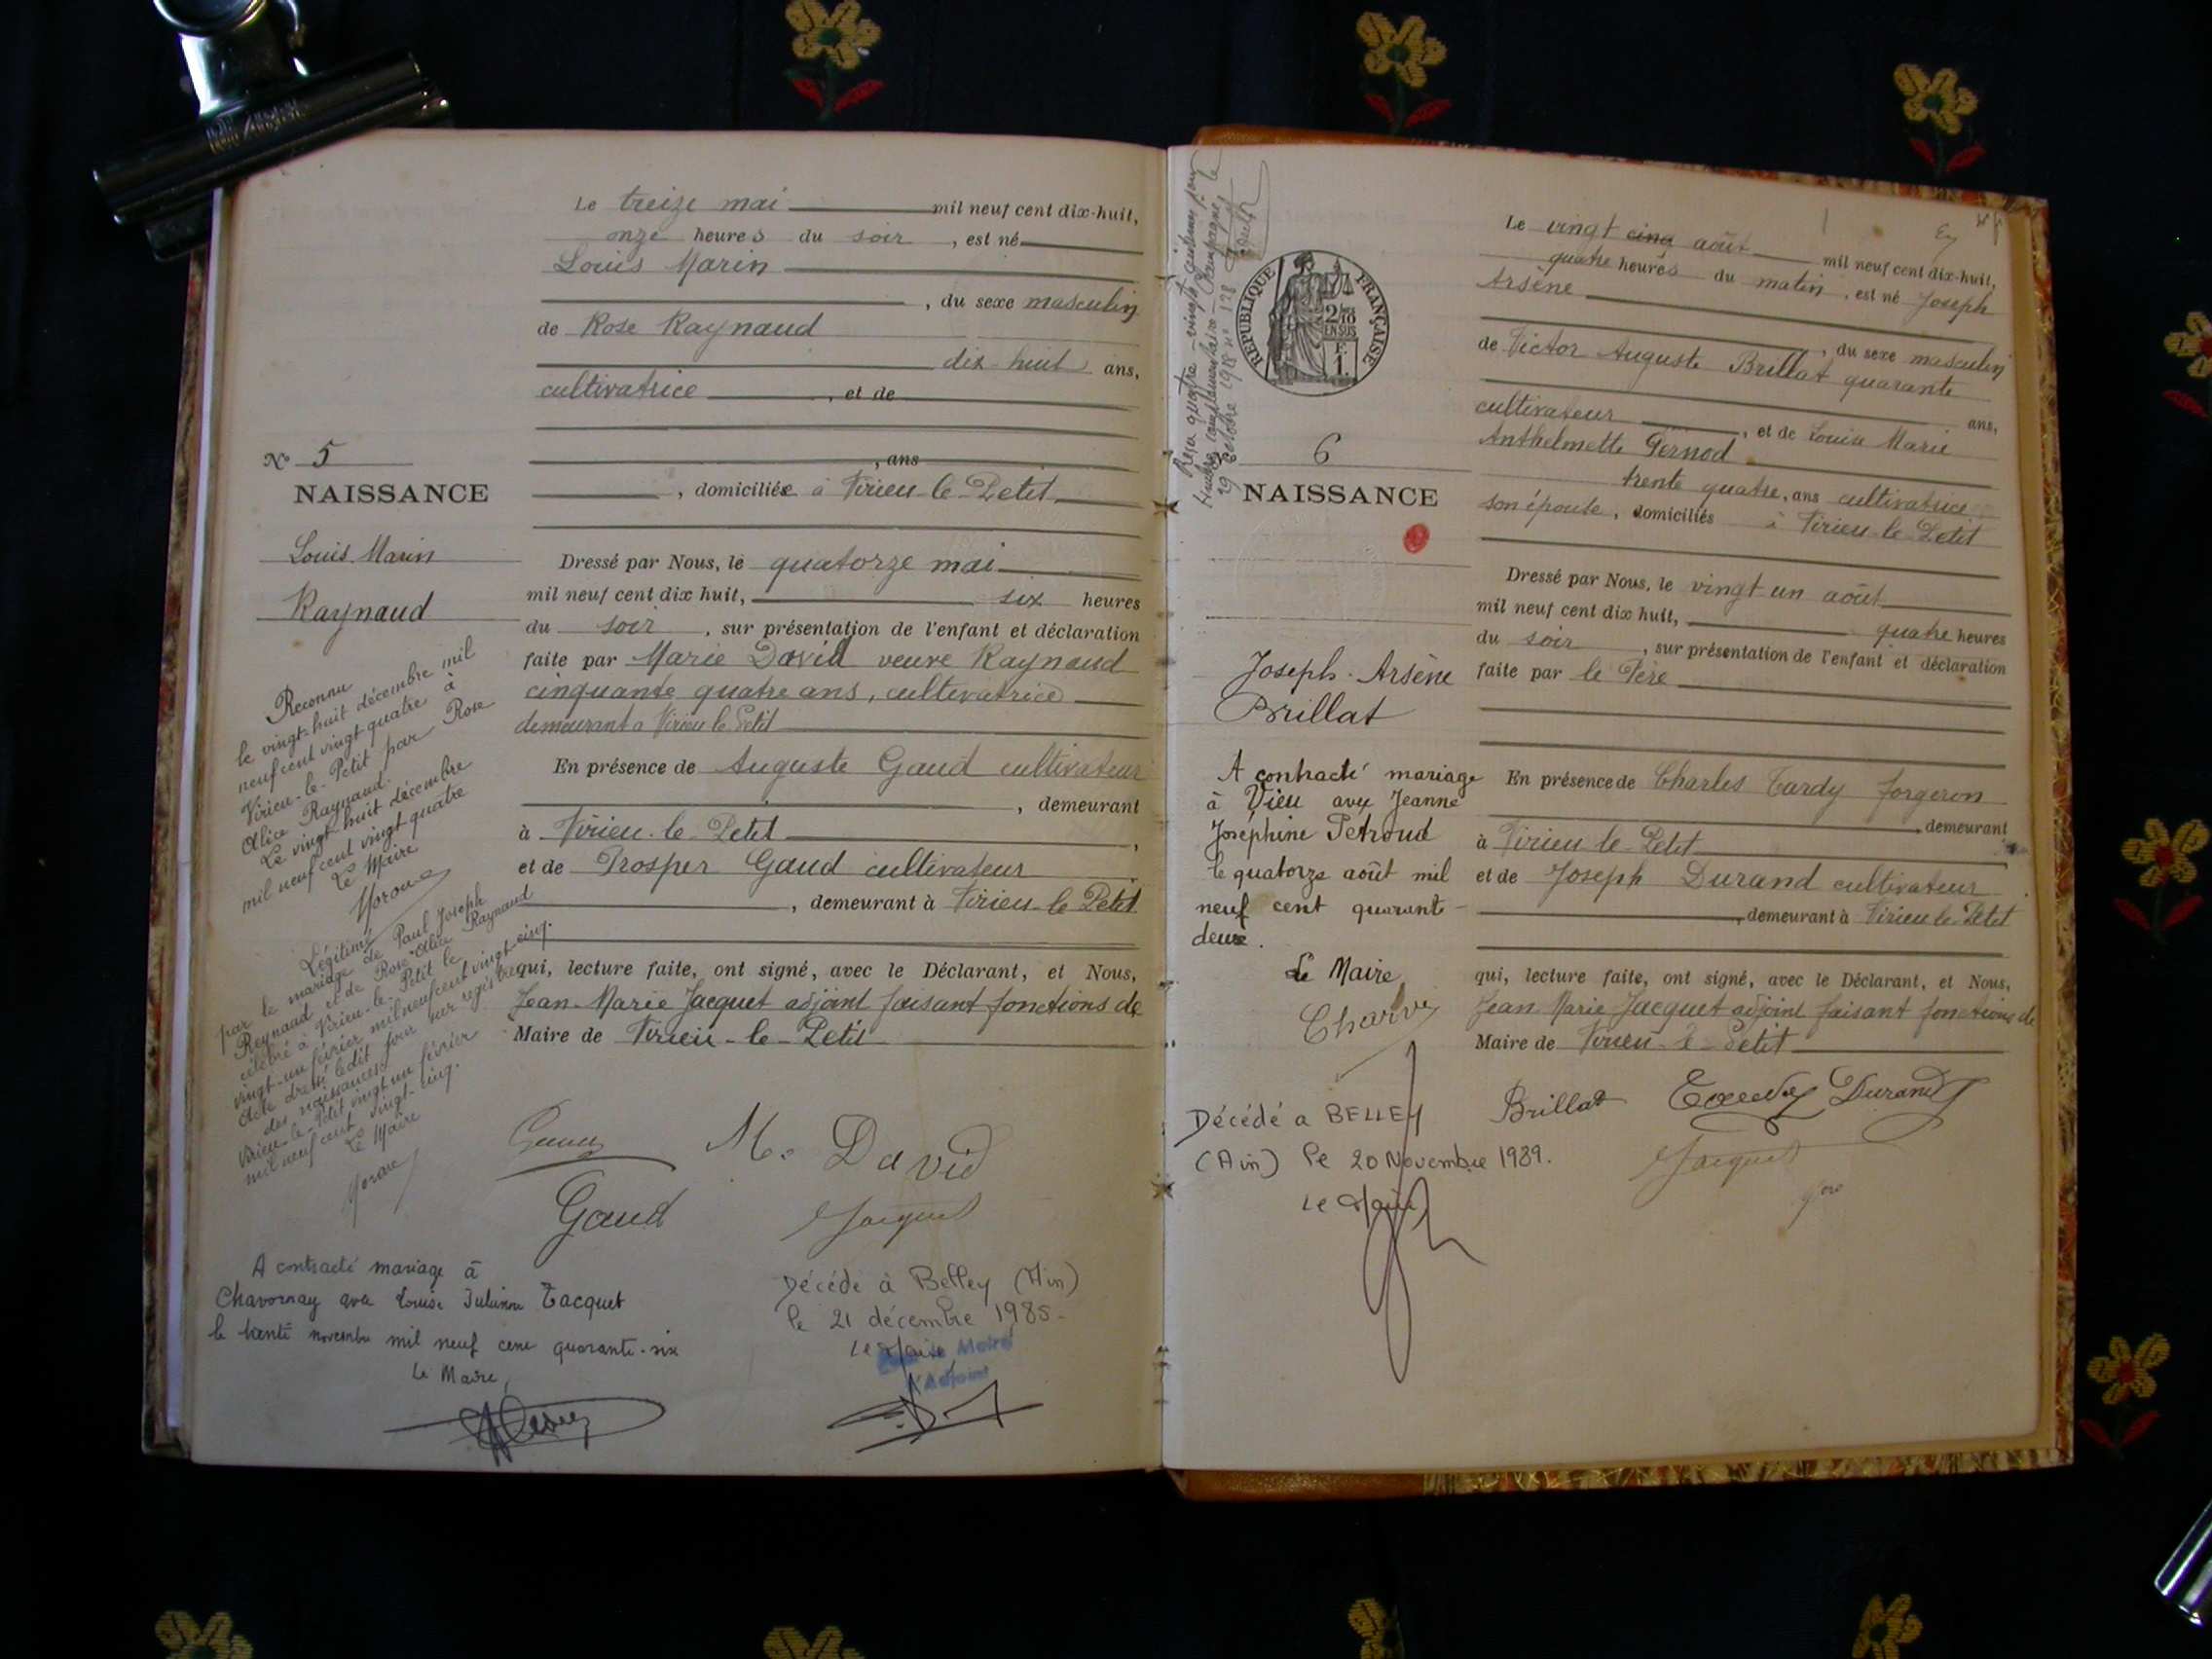 Le treize mai mil neuf cent dix-huit,
onze heures du soir, est né
Louis Marin
, du sexe masculin
de Rose Raynaud
dix-huit ans,
cultivatrice, et de
, ans
, domiciliée à Virieu-le-Petit
N° 5
NAISSANCE
Louis Marin
Raynaud
Dressé par Nous, le quatorze mai
mil neuf cent dix huit, six heures
du soir, sur présentation de l'enfant et déclaration
faite par Marie David veuve Raynaud
cinquante quatre ans, cultivatrice
demeurant à Virieu le Petit
En présence de Auguste Gaud cultivateur
, demeurant
à Virieu-le-Petit,
et de Prosper Gaud cultivateur
, demeurant à Virieu-le Petit
qui, lecture faite, ont signé, avec le Déclarant, et Nous,
Jean-Marie Jacquet adjoint faisant fonctions de
Maire de Virieu-le-Petit
Reconnu
le vingt-huit décembre mil
neuf cent vingt quatre à
Virieu-le-Petit par Rose
Alice Raynaud.
Le vingt huit décembre
mil neuf cent vingt quatre
Le Maire
Légitimé
par le mariage de Paul Joseph
Reynaud et de Rose-Alice Raynaud
célébré à Virieu-le-Petit le
vingt-un février mil neuf cent vingt-cinq.
Acte dressé le dit jour sur registre
des naissances
Virieu-le-Petit vingt un février
mil neuf cent vingt-cinq.
Le Maire
M. David
Gaud
Jacquet
A contracté mariage à
Chavornay avec Louise Tacquet
le trente novembre mil neuf cent quarante-six
Le Maire,
Décédé à Belley (Ain)
le 21 décembre 1985-
Le Maire
Maire
l'Adjoint
REPUBLIQUE FRANÇAISE
2/10
EN SUS
F.
1.
6
NAISSANCE
Joseph-Arsène
Brillat
Le vingt cinq août mil neuf cent dix-huit,
quatre heures du matin, est né Joseph
Arsène
, du sexe masculin
de Victor Auguste Brillat quarante
ans,
cultivateur, et de Louise Marie
Anthelmette Gernod
trente quatre, ans cultivatrice
son épouse, domiciliés à Virieu-le-Petit
Dressé par Nous, le vingt un août
mil neuf cent dix huit, quatre heures
du soir, sur présentation de l'enfant et déclaration
faite par le Père
En présence de Charles Tardy forgeron
, demeurant
à Virieu le-Petit
et de Joseph Durand cultivateur
, demeurant à Virieu le-Petit
qui, lecture faite, ont signé, avec le Déclarant, et Nous,
Jean Marie Jacquet adjoint faisant fonctions de
Maire de Virieu-le-Petit
A contracté mariage
à Vieu avec Jeanne
Joséphine Petroud
le quatorze août mil
neuf cent quarante-
deux.
Le Maire
Décédé a BELLEY
(Ain) le 20 Novembre 1989.
Le Maire
Brillat Durand
Jacquet